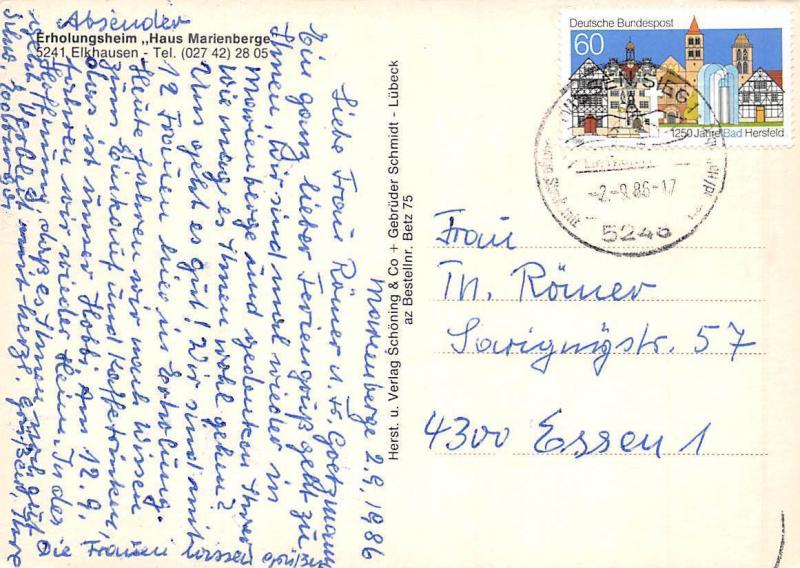 Absender
Erholungsheim „Haus Marienberge"
5241 Elkhausen - Tel. (027 42) 28 05
Marienberge 2.9.1986
Liebe Frau Römer u. Fs. Goetzmann
Ein ganz lieber Feriengruß geht zu
Ihnen. Wir sind mal wieder in
Marienberge und gedenken Ihrer.
Wie mag es Ihnen wohl gehen?
Uns geht es gut! Wir sind mit
12 Frauen hier in Erholung.
Heute fahren wir nach Wissen
zum Einkauf und Kaffetrinken,
das ist unser Hobbi. Am 12.9.
fahren wir wieder Heim. In der
Hoffnung, daß es Ihnen noch gut
geht verbleibt mit herzl. Grüßen, Ihre
Schw.
Die Frauen lassen grüßen
Herst. u. Verlag Schöning & Co + Gebrüder Schmidt - Lübeck
az Bestellnr. Betz 75
Deutsche Bundespost
60
1250 Jahre Bad Hersfeld
-2.-9.86-17
524
Frau
Th. Römer
Savignystr. 57
4300 Essen 1